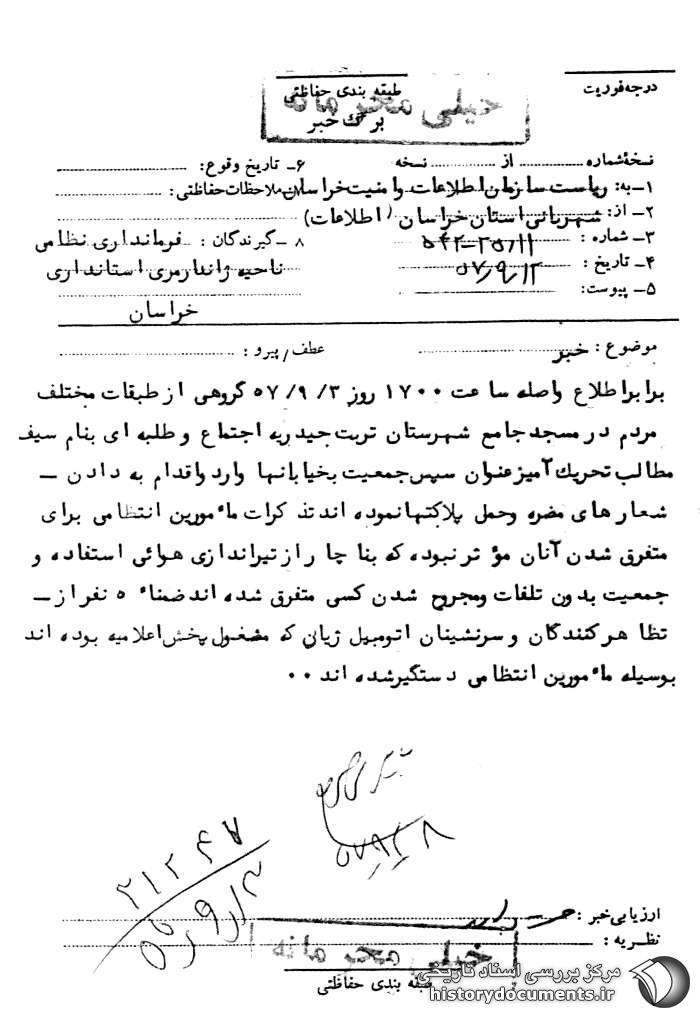 درجه فوریت
طبقه بندی حفاظتی
خیلی محرمانه
برگ خبر
نسخهٔ شماره ........ از ........ نسخه
۱ـ به: ریاست سازمان اطلاعات و امنیت خراسان
۲ـ از: شهربانی استان خراسان (اطلاعات)
۳ـ شماره :
۴ـ تاریخ : ۵۷/۹/۱۲
۵ـ پیوست:
۶ـ تاریخ وقوع:
ملاحظات حفاظتی:
۸ ـ گیرندگان : فرمانداری نظامی
ناحیه ژاندارمری استانداری
خراسان
موضوع : خبر
عطف / پیرو :
برابر اطلاع واصله ساعت ۱۷۰۰ روز ۵۷/۹/۳ گروهی از طبقات مختلف
مردم در مسجد جامع شهرستان تربت حیدریه اجتماع و طلبه ای بنام سیف
مطالب تحریك آمیز عنوان سپس جمعیت بخیابانها وارد و اقدام به دادن ـ
شعارهای مضره وحمل پلاکتها نموده اند تذکرات مأمورین انتظامی برای
متفرق شدن آنان مؤثر نبوده که بناچار از تیراندازی هوائی استفاده و
جمعیت بدون تلفات ومجروح شدن کسی متفرق شده اند ضمناً ۵ نفر از ـ
تظاهرکنندگان و سرنشینان اتومبیل ژیان که مشغول پخش اعلامیه بوده اند
بوسیله مأمورین انتظامی دستگیر شده اند ۰۰
۵۷/۹/۱۸
۲۱۲۴۷
۵۷/۹/۱۳
ارزیابی خبر :
نظریه :
خیلی محرمانه
طبقه بندی حفاظتی
مرکز بررسی اسناد تاریخی
historydocuments.ir